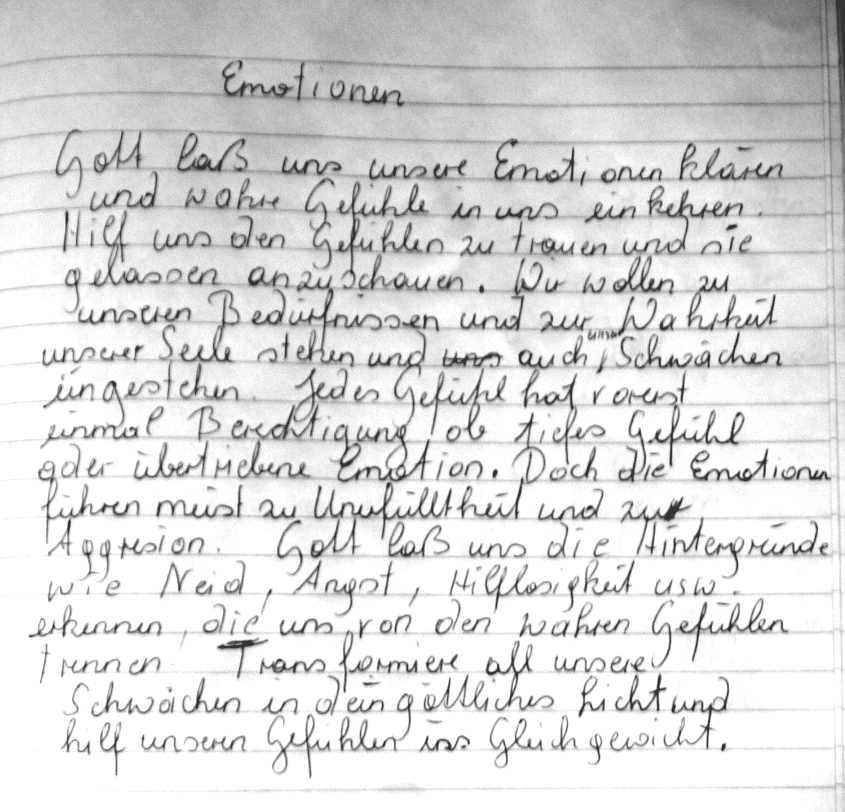 Emotionen
Gott laß uns unsere Emotionen klären
und wahre Gefühle in uns einkehren.
Hilf uns den Gefühlen zu trauen und sie
gelassen anzuschauen. Wir wollen zu
unseren Bedürfnissen und zur Wahrheit
unserer Seele stehen und uns auch, unsere Schwächen
eingestehen. Jedes Gefühl hat vorerst
einmal Berechtigung ob tiefes Gefühl
oder übertriebene Emotion. Doch die Emotionen
führen meist zu Unerfülltheit und zur
Aggresion. Gott laß uns die Hintergründe
wie Neid, Angst, Hilflosigkeit usw.
erkennen, die uns von den wahren Gefühlen
trennen. Transformiere all unsere
Schwächen in dein göttliches Licht und
hilf unseren Gefühlen ins Gleichgewicht.